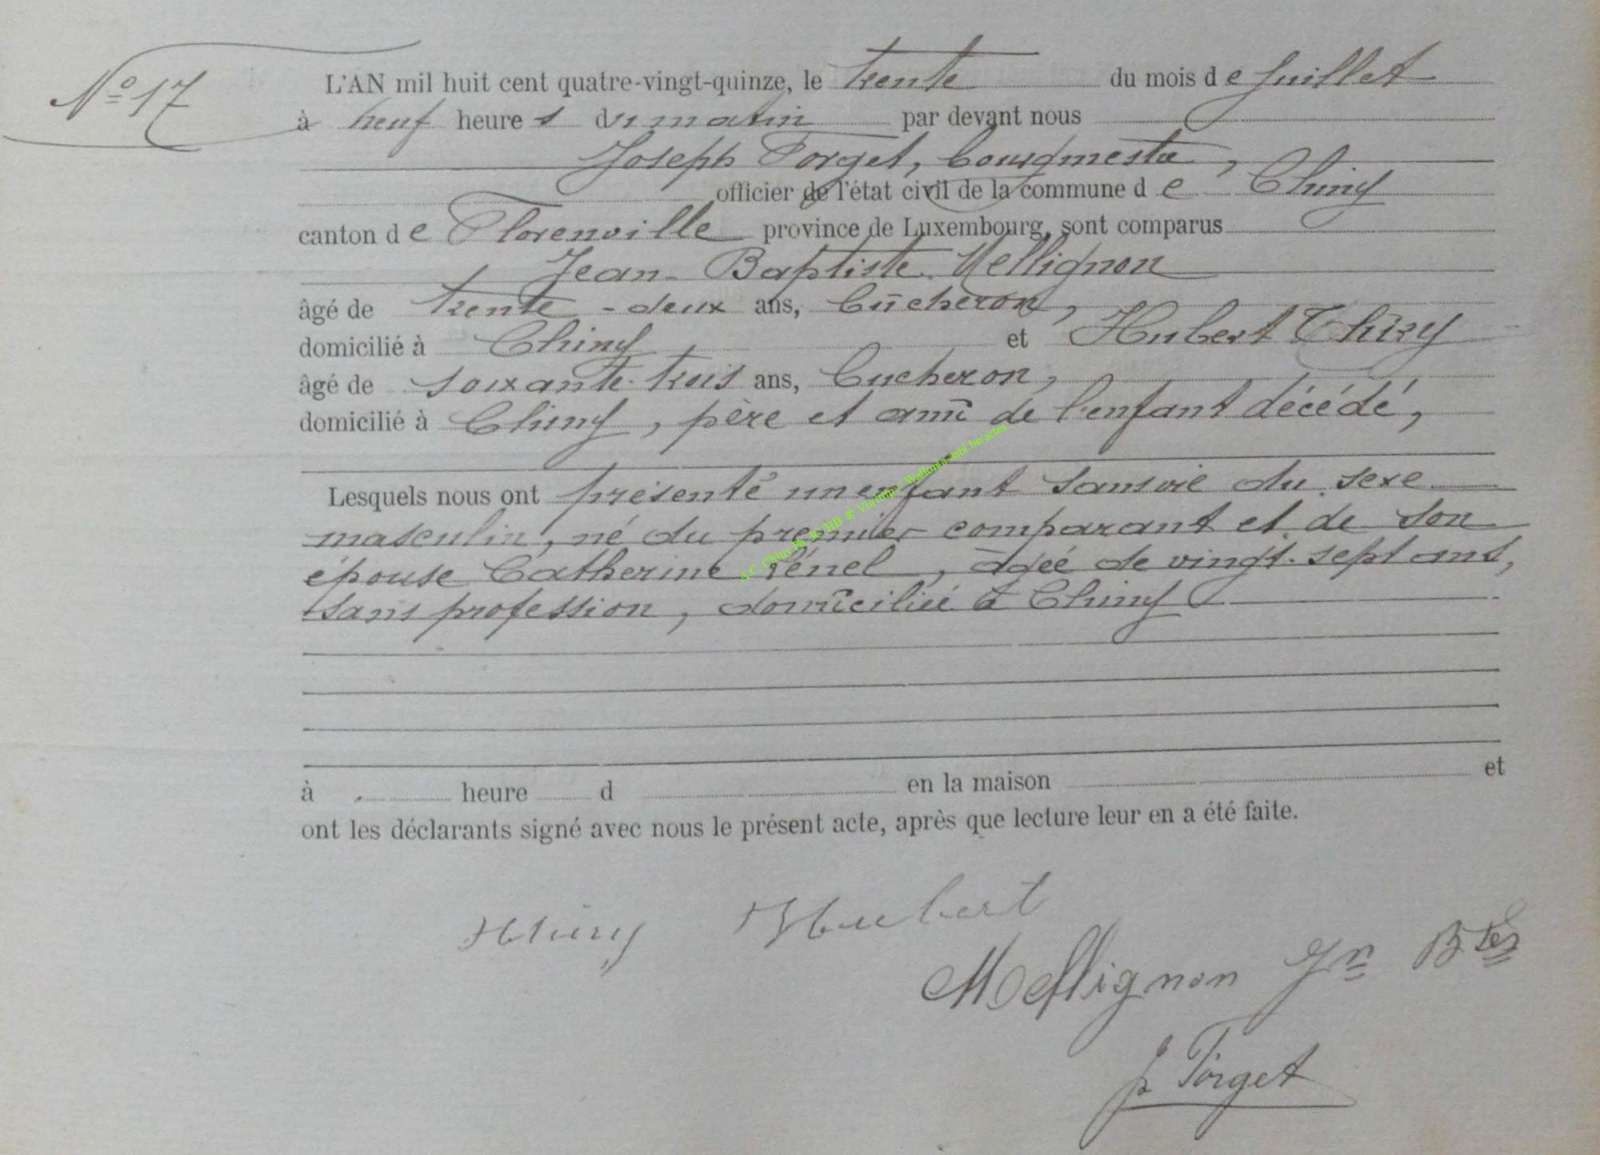 N° 17
L'AN mil huit cent quatre-vingt-quinze, le trente du mois de Juillet
à neuf heures du matin par devant nous
Joseph Forget, bourgmestre,
officier de l'état civil de la commune de Chiny
canton de Florenville province de Luxembourg, sont comparus
Jean-Baptiste Mellignon
âgé de trente-deux ans, bûcheron,
domicilié à Chiny et Hubert Thiry
âgé de soixante-trois ans, bucheron,
domicilié à Chiny, père et ami de l'enfant décédé,
Lesquels nous ont présenté un enfant sans vie du sexe
masculin, né du premier comparant et de son
épouse Catherine Rénel, âgée de vingt-sept ans,
sans profession, domiciliée à Chiny
à heure d en la maison et
ont les déclarants signé avec nous le présent acte, après que lecture leur en a été faite.
Thiry Hubert
Mellignon Jn Bte
J. Forget